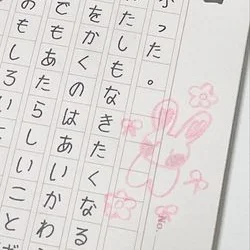 った。
たしもなきたくなる
をかくのはあいかわ
でもあたらしいことが
おもしろい
No.